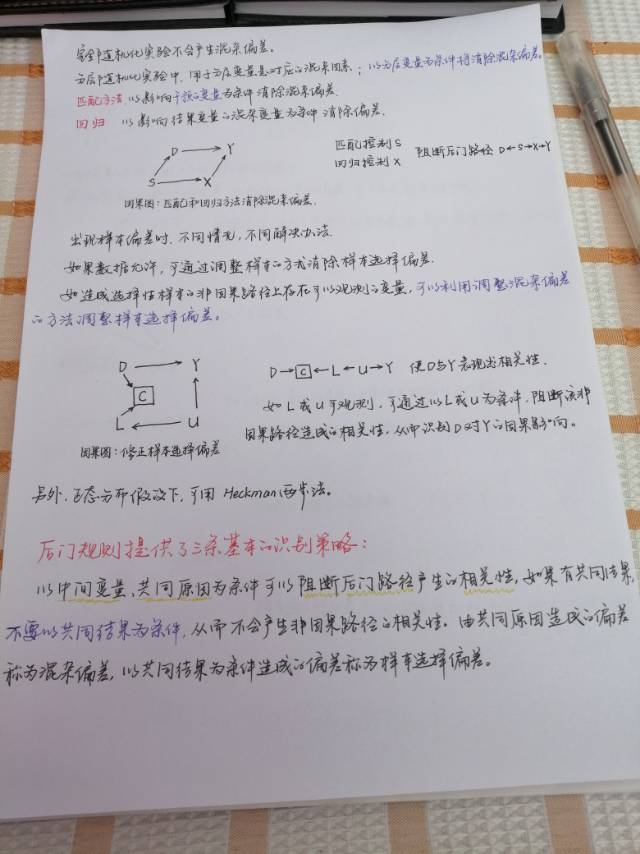 完全随机化实验不会产生混杂偏差。
分层随机化实验中,用于分层变量是对应的混杂因素;以分层变量为条件将消除混杂偏差。
匹配方法 以影响干预的变量为条件消除混杂偏差.
回归 以影响结果变量的混杂变量为条件 消除偏差.
D → Y
S → X
匹配控制 S
回归控制 X
阻断后门路径 D←S→X→Y
因果图:匹配和回归方法消除混杂偏差.
出现样本偏差时.不同情况,不同解决办法.
如果数据允许,可通过调整样本的方式消除样本选择偏差.
如造成选择性样本的非因果路径上存在可以观测的变量,可以利用调整混杂偏差
的方法调整样本选择偏差。
D → Y
C
L ← U
因果图:修正样本选择偏差
D→C←L←U→Y 使D与Y表现出相关性.
如L或U可观测,可通过以L或U为条件,阻断该非
因果路径造成的相关性,从而识别D对Y的因果影响。
另外,正态分布假设下,可用 Heckman 两步法。
后门规则提供了三条基本的识别策略:
以中间变量、共同原因为条件可以阻断后门路径产生的相关性,如果有共同结果,
不要以共同结果为条件,从而不会产生非因果路径的相关性。由共同原因造成的偏差
称为混杂偏差,以共同结果为条件造成的偏差称为样本选择偏差。